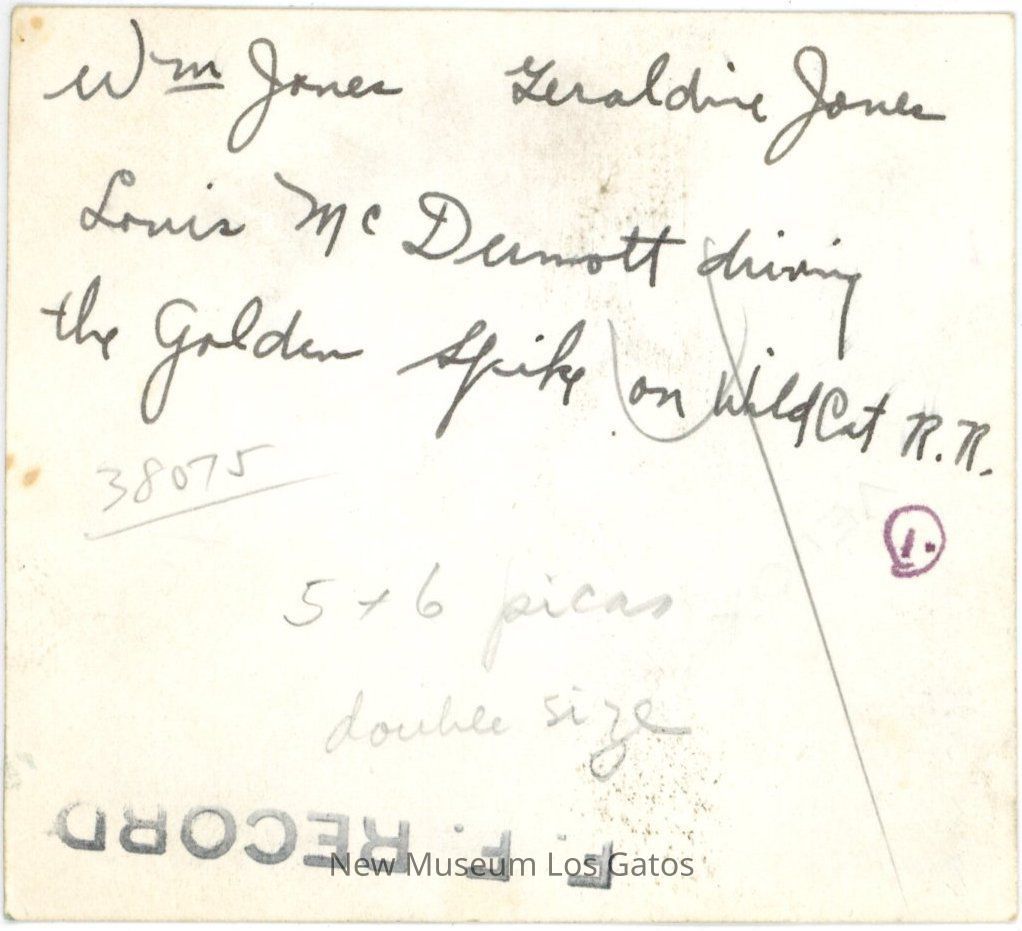 Wm Jones Geraldine Jones
Louis McDermott driving
the Golden Spike on WildCat R.R.
38075
1.
5 x 6 picas
double size
F. F. RECORD
New Museum Los Gatos